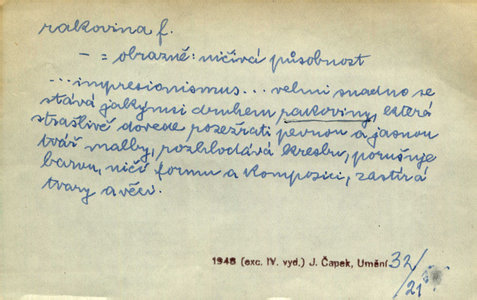 rakovina f.
– = obrazně: ničivá působnost
...impresionismus... velmi snadno se
stává jakýmsi druhem rakoviny, která
strašlivě dovede pozežrati pevnou a jasnou
tvář malby, rozhlodává kresbu, porušuje
barvu, ničí formu a komposici, zastírá
tvary a věci.
1948 (exc. IV. vyd.) J. Čapek, Umění 32/21